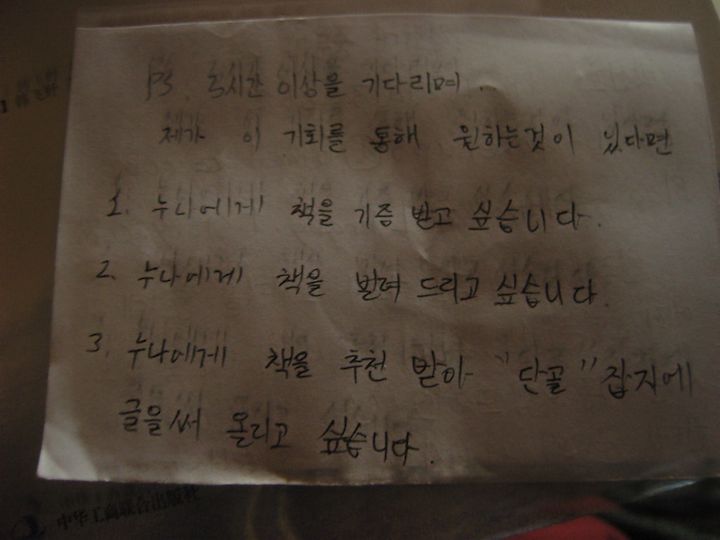 PS. 3시간 이상을 기다리며.
제가 이 기회를 통해 원하는것이 있다면
1. 누나에게 책을 기증 받고 싶습니다.
2. 누나에게 책을 빌려 드리고 싶습니다.
3. 누나에게 책을 추천 받아 "단골" 잡지에
글을써 올리고 싶습니다.
中华工商联合出版社